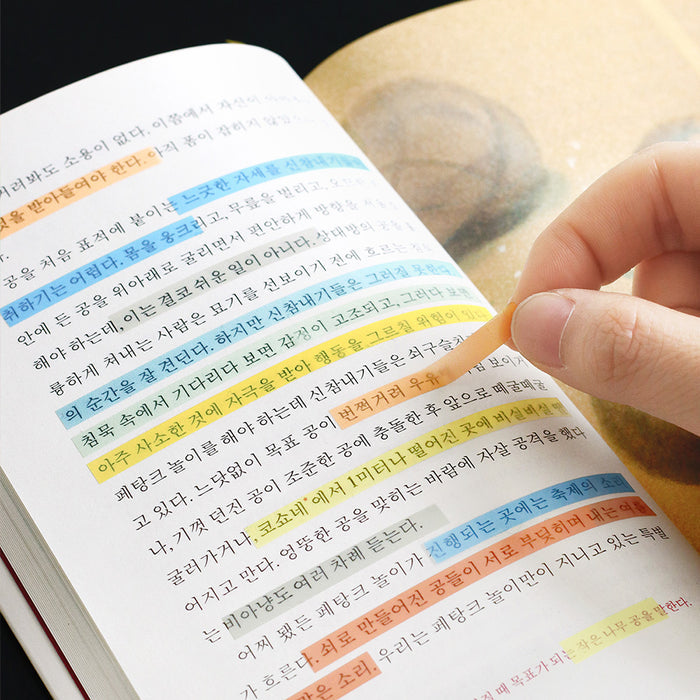 거려봐도 소용이 없다. 이쯤에서 자신이
것을 받아들여야 한다. 아직 폼이 잡히지 않았
공을 처음 표적에 붙이는 느긋한 자세를 신참내기들
취하기는 어렵다. 몸을 웅크리고, 무릎을 벌리고,
안에 든 공을 위아래로 굴리면서 편안하게 방향을
해야 하는데, 이는 결코 쉬운 일이 아니다. 상대방의 곳을
륭하게 쳐내는 사람은 묘기를 선보이기 전에 흐르는
의 순간을 잘 견딘다. 하지만 신참내기들은 그러질 못한다.
침묵 속에서 기다리다 보면 감정이 고조되고, 그러다 보면
아주 사소한 것에 자극을 받아 행동을 그르칠 위험이 있
페탕크 놀이를 해야 하는데 신참내기들은 쇠구슬치
고 있다. 느닷없이 목표 공이 번쩍거려 우유 보이거
나, 기껏 던진 공이 조준한 공에 충돌한 후 앞으로 떼굴떼굴
굴러가거나, 코쇼네*에서 1미터나 떨어진 곳에 비실비실
어지고 만다. 엉뚱한 공을 맞히는 바람에 자살 공격을 했다
는 비아냥도 여러 차례 듣는다.
어찌 됐든 페탕크 놀이가 진행되는 곳에는 축제의 소리
가 흐른다. 쇠로 만들어진 공들이 서로 부딪히며 내는 여름
같은 소리. 우리는 페탕크 놀이만이 지니고 있는 특별
때 목표가 되는 작은 나무 공을 말한다.